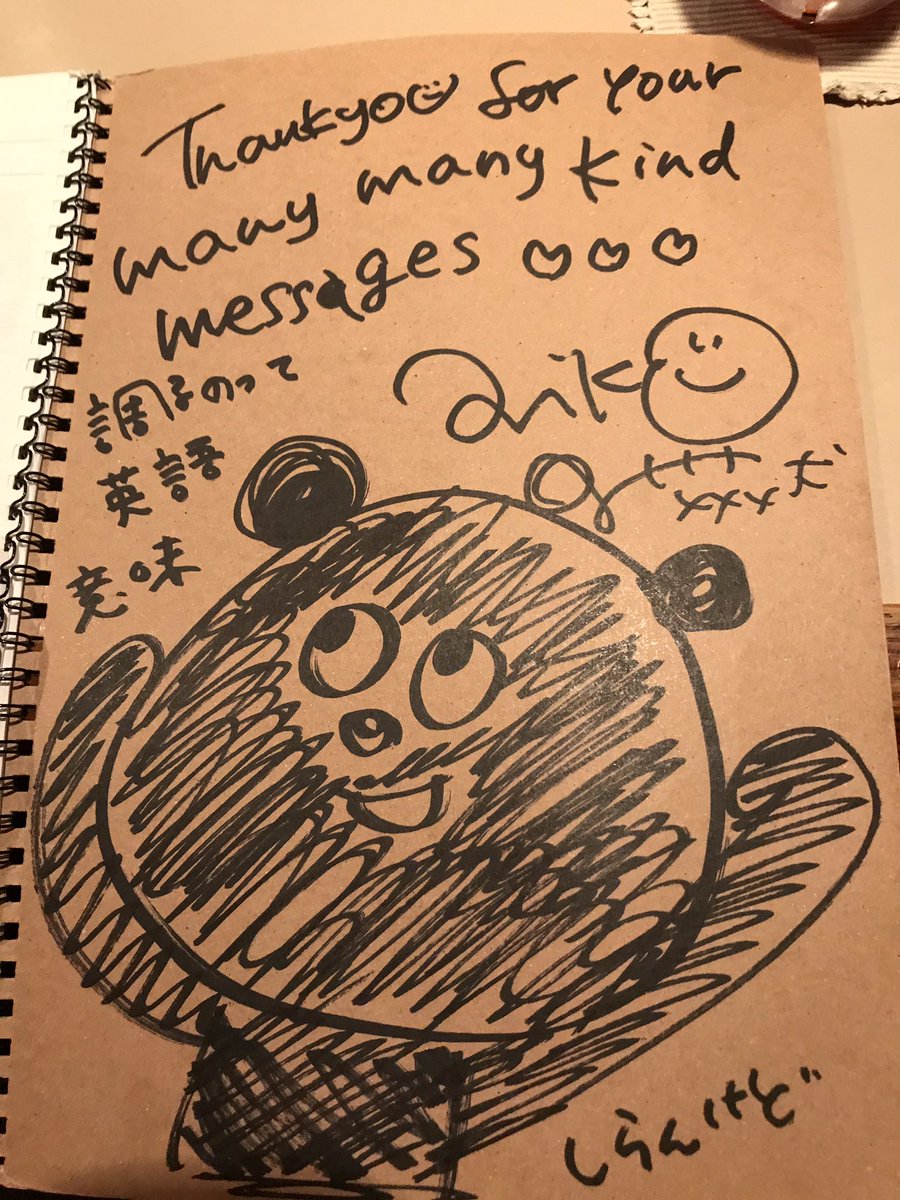 Thank you for your
many many kind
messages ♡♡♡
aiko
調子のって
英語
意味
しらんけど